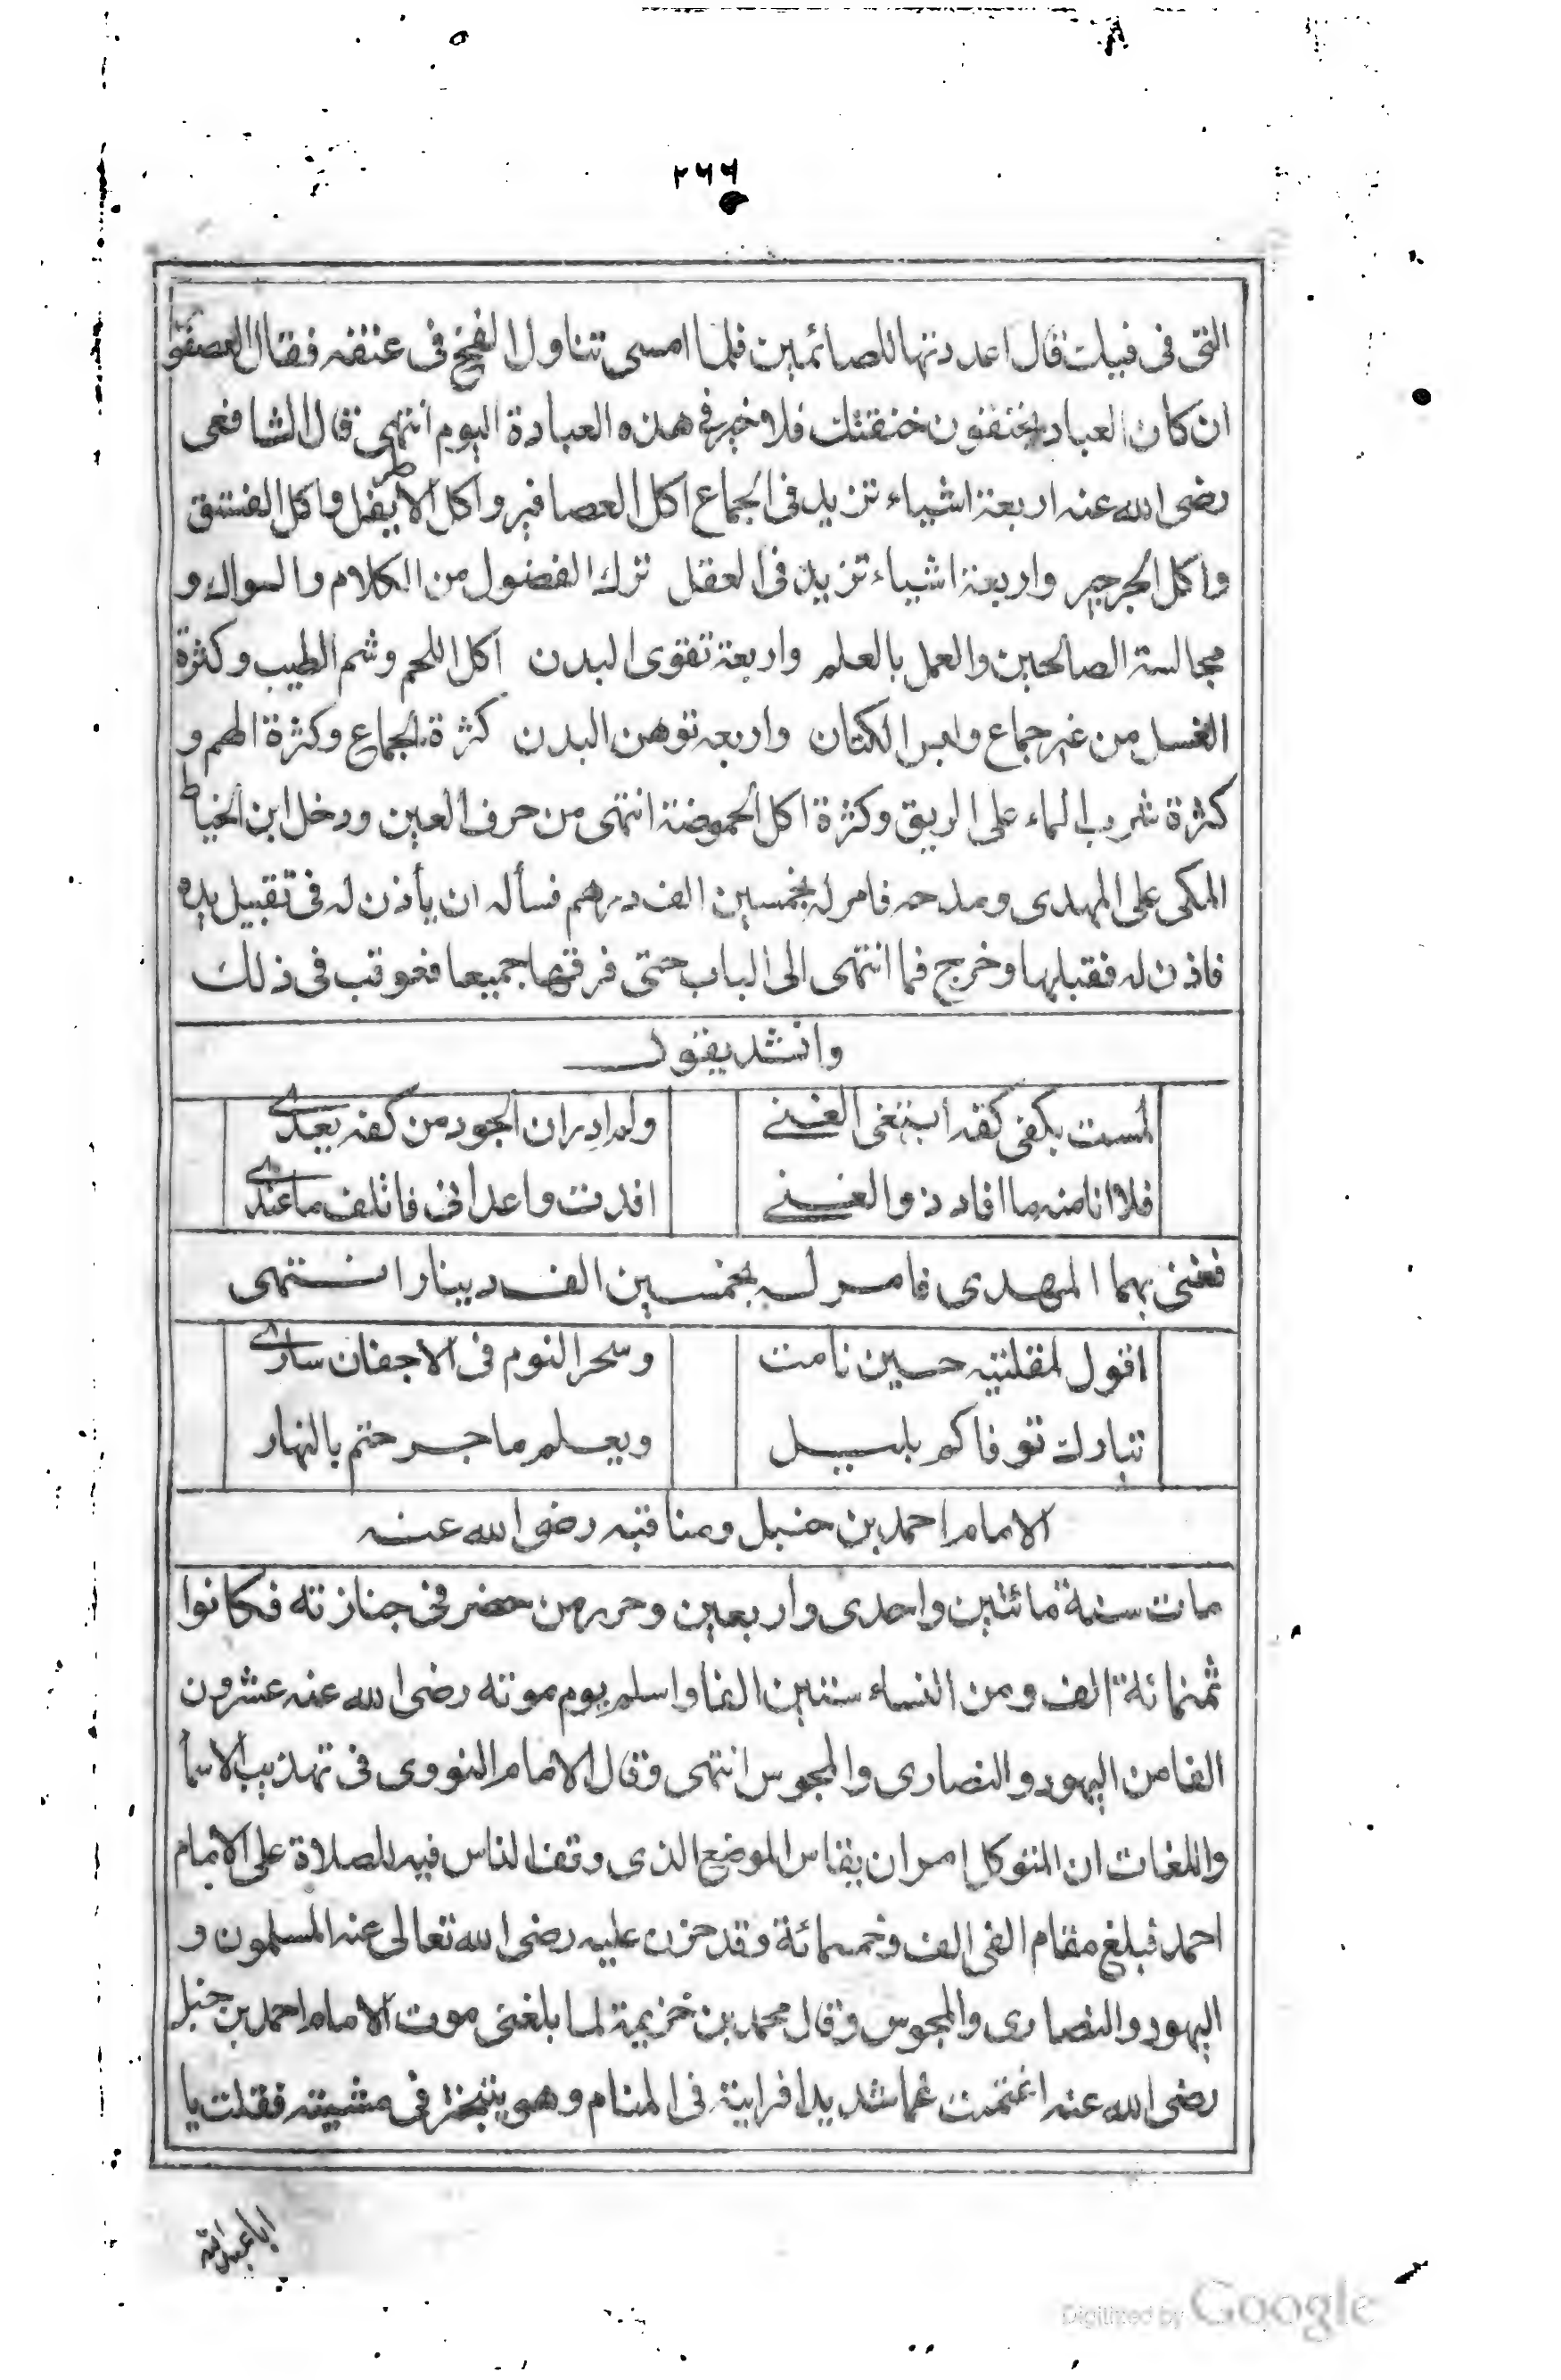 ٢٦٦
التى فى فيك قال اعددتها للصائمين فلما امسى تناول الفخ فى عنقه فقال العصفور
ان كان العباد يخنقون خنقتك فلا خير فى هذه العبادة اليوم انتهى قال الشافعى
رضى الله عنه اربعة اشياء تزيد فى الجماع اكل العصافير واكل الاطريفل واكل الفستق
واكل الجرجير واربعة اشياء تزيد فى العقل ترك الفضول من الكلام والسواك و
مجالسة الصالحين والعمل بالعلم واربعة تقوى البدن اكل اللحم وشم الطيب وكثرة
الغسل من غير جماع ولبس الكتان واربعه توهن البدن كثرة الجماع وكثرة الهم و
كثرة شرب الماء على الريق وكثرة اكل الحموضة انتهى من حرف العين ودخل ابن الخياط
المكى على المهدى ومدحه فامر له بخمسين الف درهم فسأله ان يأذن له فى تقبيل يده
فاذن له فقبلها وخرج فما انتهى الى الباب حتى فرقها جميعا فعوتب فى ذلك
وانشد يقول
لمست بكفى كفه ابتغى الغنى ولم ادر ان الجود من كفه يعدى
فلا انا منه ما افاد ذو الغنى افدت واعدانى فاتلف ما عندى
فغنى بهما المهدى فامر له بخمسين الف دينار انتهى
اقول لمقلتيه حين نامت وسحر النوم فى الاجفان سارى
تبارك توفاكم بليل ويعلم ما جرحتم بالنهار
الامام احمد بن حنبل ومناقبه رضى الله عنه
مات سنة مائتين واحدى واربعين وحرر من حضر فى جنازته فكانوا
ثمنمائة الف ومن النساء ستين الفا واسلم يوم موته رضى الله عنه عشرون
الفا من اليهود والنصارى والمجوس انتهى وقال الامام النووى فى تهذيب الاسمأ
واللغات ان المتوكل امر ان يقاس الموضع الذى وقف الناس فيه للصلاة على الامام
احمد فبلغ مقام الفى الف وخمسمائة وقد حزن عليه رضى الله تعالى عنه المسلمون و
اليهود والنصارى والمجوس وقال محمد بن خزيمة لما بلغنى موت الامام احمد بن حنبل
رضى الله عنه اغتممت غما شديدا فرايته فى المنام وهو يتبختر فى مشيته فقلت يا
ابا عبد الله
Digitized by Google